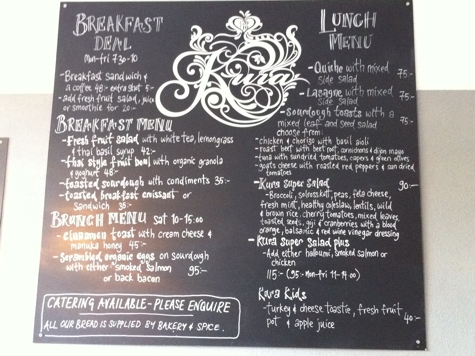 BREAKFAST
DEAL
Mon-fri 7.30-10
-Breakfast sandwich &
a coffee 48:- extra shot 5:-
-add fresh fruit salad, juice
or smoothie for 20:-
BREAKFAST MENU
-Fresh fruit salad with white tea, lemongrass
& thai basil syrup 42:-
-thai style fruit bowl with organic granola
& yoghurt 48:-
-toasted sourdough with condiments 35:-
-toasted breakfast croissant or
sandwich 35:-
BRUNCH MENU SAT 10-15:00
-cinnamon toast with cream cheese &
manuka honey 45:-
-Scrambled organic eggs on sourdough
with either smoked salmon 95:-
or back bacon
CATERING AVAILABLE - PLEASE ENQUIRE
ALL OUR BREAD IS SUPPLIED BY BAKERY & SPICE.
Kura
LUNCH
MENU
-Quiche with mixed 75:-
side salad
-Lasagne with mixed 75:-
side salad
-Sourdough toasts with a 75:-
mixed leaf and seed salad
choose from:
-chicken & chorizo with basil aioli
-roast beef with beet relish, cornichons & dijon mayo
-tuna with sundried tomatoes, capers & green olives
-goats cheese with roasted red peppers & sun dried
tomatoes
-Kura Super Salad 90:-
-Broccoli, peas, feta cheese,
fresh mint, healthy coleslaw, lentils, wild
& brown rice, cherry tomatoes, mixed leaves,
toasted seeds, goji & cranberries with a blood
orange, balsamic and red wine vinegar dressing
-Kura Super Salad plus
-Add either halloumi, smoked salmon or
chicken
115:- (95:- Mon-Fri 11-14:00)
Kura Kids
-turkey & cheese toastie, fresh fruit
pot & apple juice 40:-